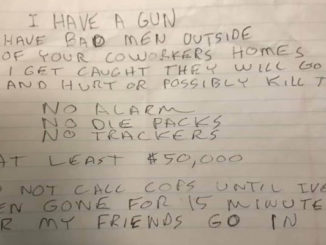 I HAVE A GUN
HAVE BAD MEN OUTSIDE
OF YOUR COWORKERS HOMES
I GET CAUGHT THEY WILL GO
AND HURT OR POSSIBLY KILL T
NO ALARM
NO DIE PACKS
NO TRACKERS
AT LEAST $50,000
NOT CALL COPS UNTIL IVE
EN GONE FOR 15 MINUTE
R MY FRIENDS GO IN